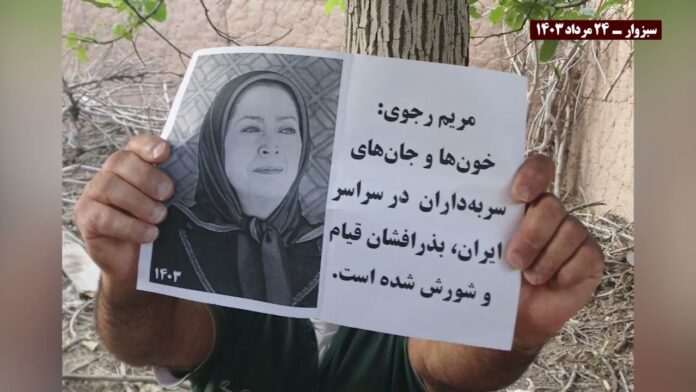 سبزوار ــ ۲۴ مرداد ۱۴۰۳
مریم رجوی:
خون‌ها و جان‌های
سربه‌داران در سراسر
ایران، بذرافشان قیام
و شورش شده است.
۱۴۰۳